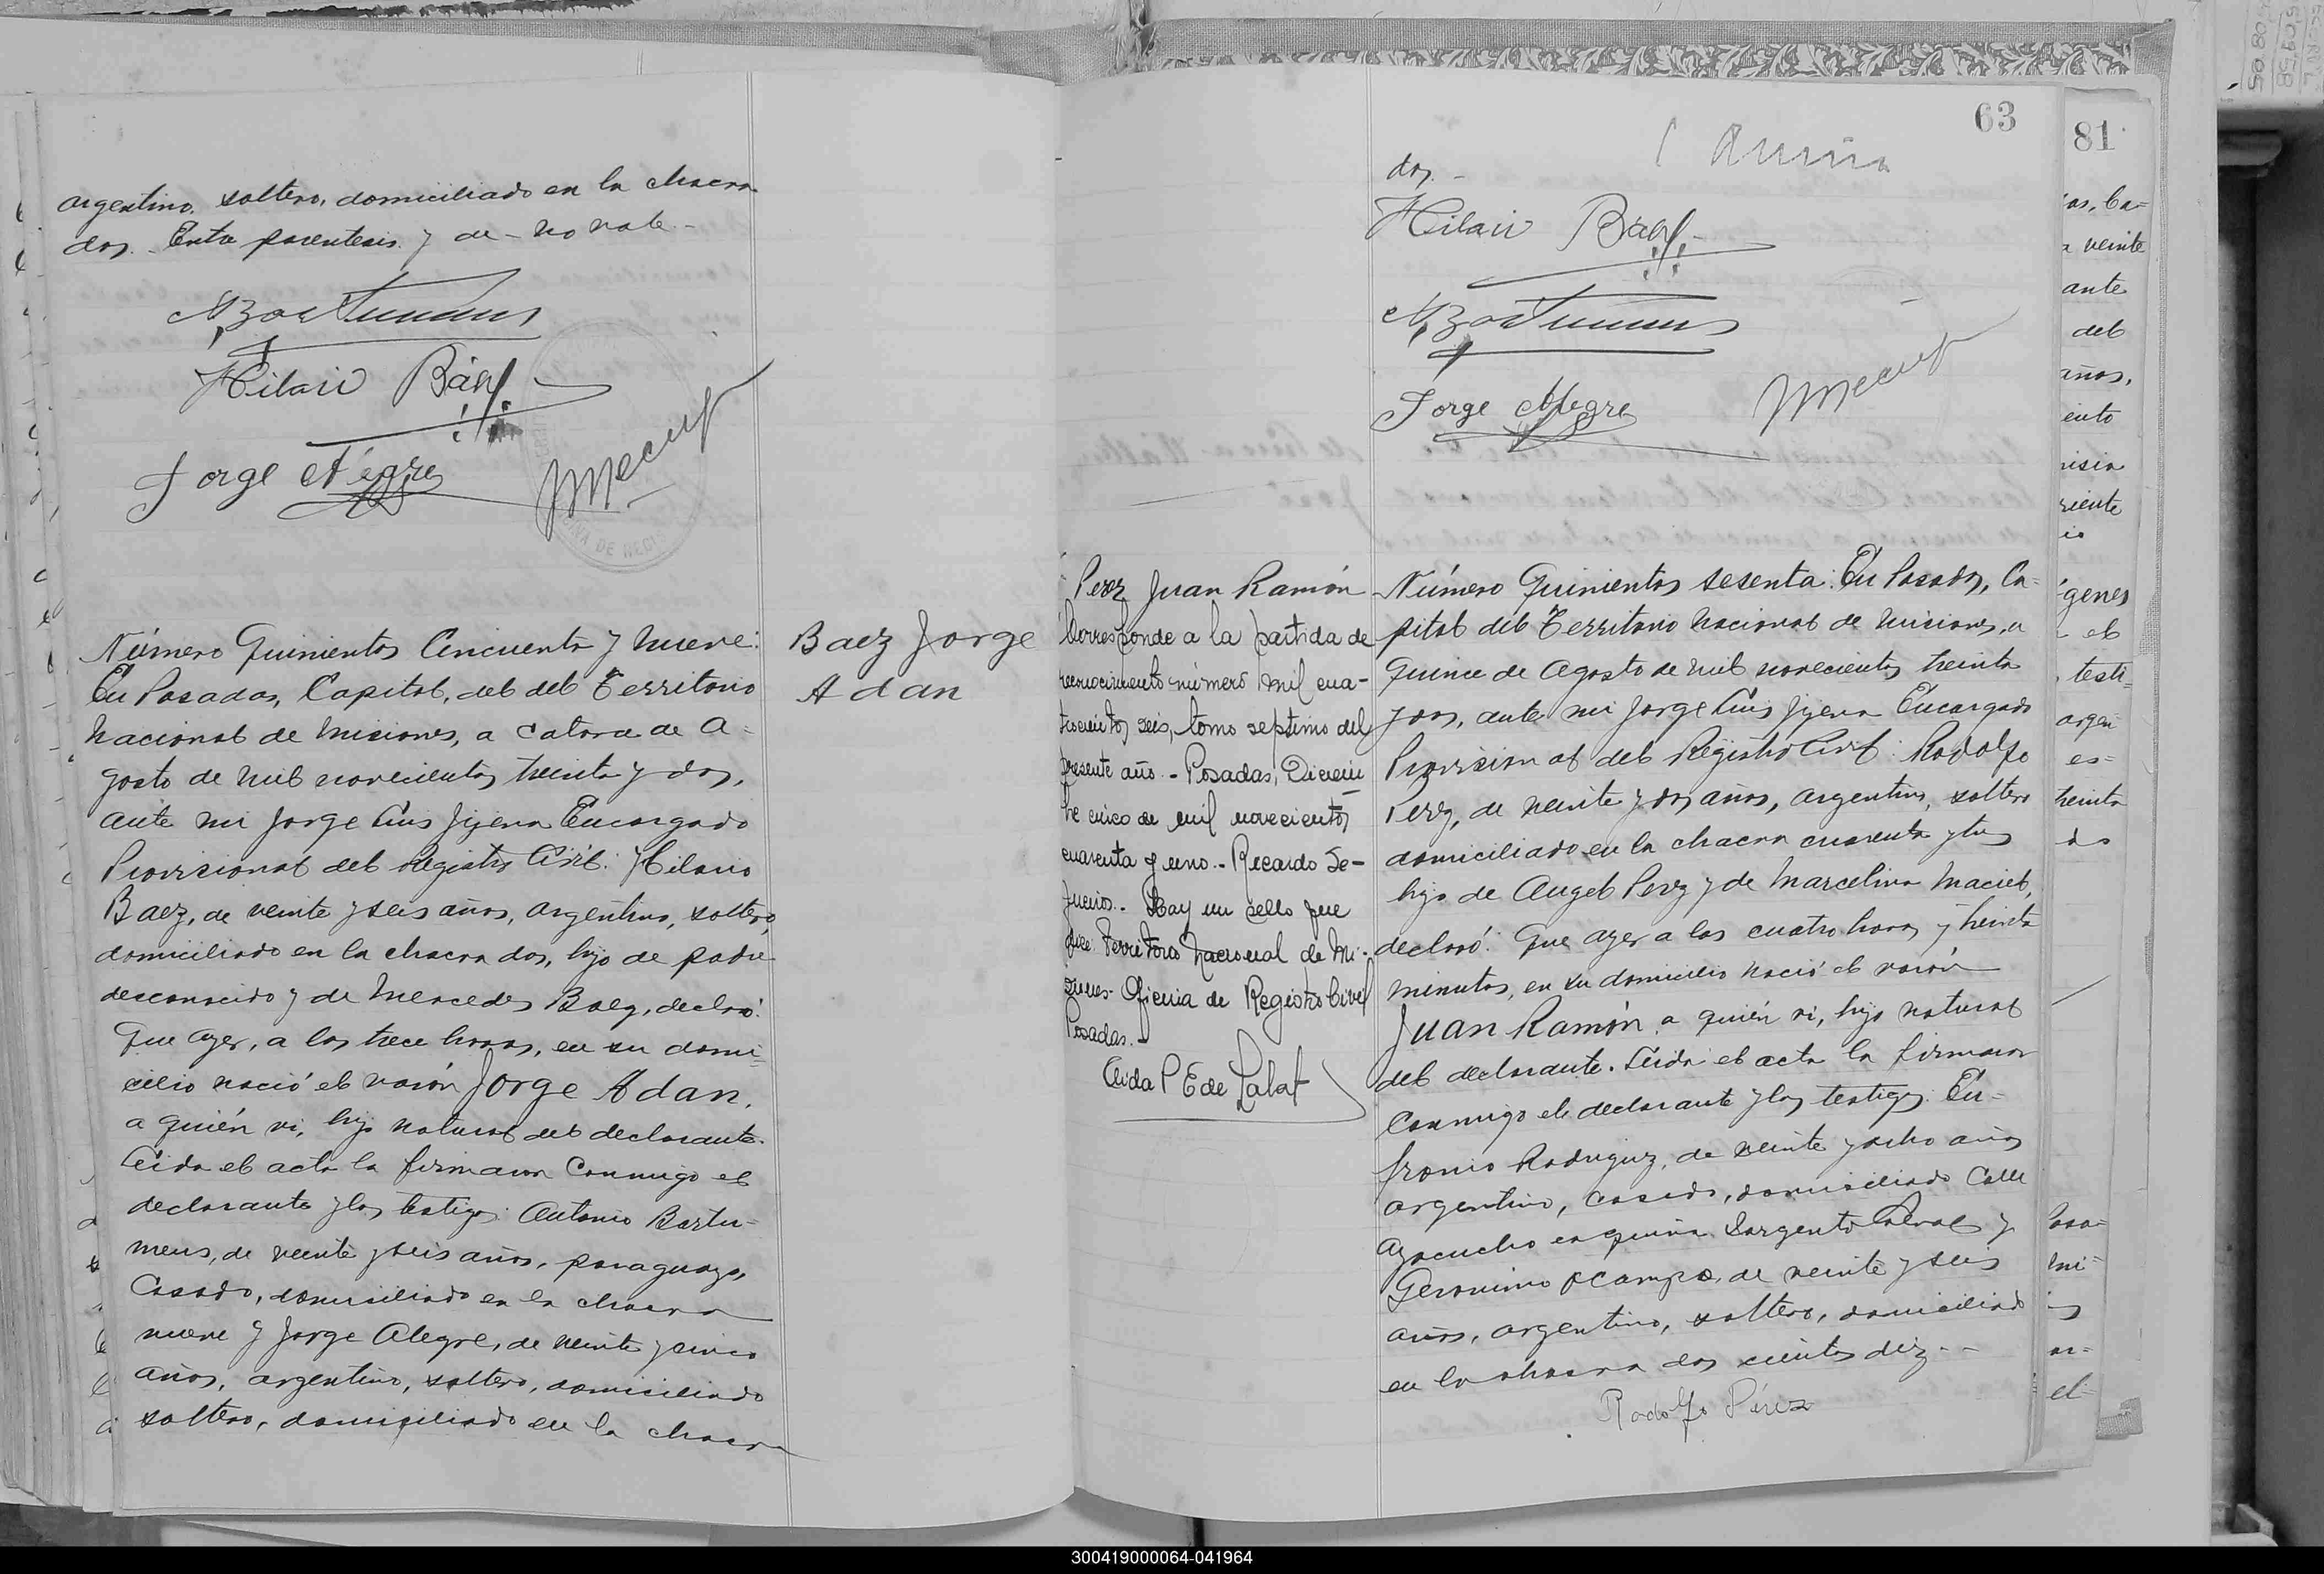 argentino, soltero, domiciliado en la chacra
dos. Entre parentesis y de - no vale -
Hilario Báez
Jorge Alegre
Número Quinientos Cincuenta y nueve:
En Posadas, Capital, del del Territorio
Nacional de Misiones, a catorce de A=
gosto de mil novecientos treinta y dos,
ante mi Jorge Luis Jijena Encargado
Provisional del Registro Civil: Hilario
Baez, de veinte y seis años, argentino, soltero,
domiciliado en la chacra dos, hijo de padre
desconocido y de Mercedes Baez, declaró:
Que ayer, a las trece horas, en su domi=
cilio nació el varón Jorge Adan,
a quién vi, hijo natural del declarante.
Leida el acta la firmaron conmigo el
declarante y los testigos: Antonio Bartu=
meus, de veinte y seis años, paraguayo,
casado, domiciliado en la chacra
nueve y Jorge Alegre, de veinte y cinco
años, argentino, soltero, domiciliado
soltero, domiciliado en la chacra
Baez Jorge
Adan
63
dos. -
Hilario Báez
Jorge Alegre
Perez Juan Ramón
Corresponde a la partida de
reconocimiento número mil cua-
trocientos seis, tomo septimo del
presente año. - Posadas, Diciem
bre cinco de mil novecientos
cuarenta y uno. - Ricardo
Hay un sello que
dice: Territorio Nacional de Mi-
siones - Oficina de Registro Civil
Posadas. -
Elida P E de Labat
Número Quinientos sesenta: En Posadas, Ca=
pital del Territorio Nacional de Misiones, a
quince de Agosto de mil novecientos treinta
y dos, ante mi Jorge Luis Jijena Encargado
Provisional del Registro Civil: Rodolfo
Perez, de veinte y dos años, argentino, soltero
domiciliado en la chacra cuarenta y tres
hijo de Angel Perez y de Marcelina Maciel,
declaró: Que ayer a las cuatro horas y treinta
minutos, en su domicilio nació el varón
Juan Ramón a quién vi, hijo natural
del declarante. Leida el acta la firmaron
conmigo el declarante y los testigos: Eu=
fronio Rodriguez, de veinte y ocho años
argentino, casado, domiciliado Calle
Ayacucho esquina Sargento Cabral y
Geronimo Ocampo, de veinte y seis
años, argentino, soltero, domiciliado
en la chacra dos cientos diez - -
Rodolfo Pérez
81
as, ca=
a veinte
ante
del
años,
ento
isia
genes
el
testi=
argen
es=
treinta
Posa=
mi=
el
300419000064-041964